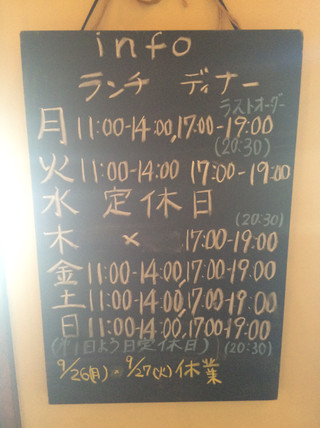 info
ランチ ディナー
ラストオーダー
月 11:00-14:00, 17:00-19:00
(20:30)
火 11:00-14:00 17:00-19:00
水 定休日
(20:30)
木 × 17:00-19:00
金 11:00-14:00, 17:00-19:00
土 11:00-14:00, 17:00-19:00
日 11:00-14:00, 17:00-19:00
日よう日定休日) (20:30)
9/26(月)・9/27(火)休業